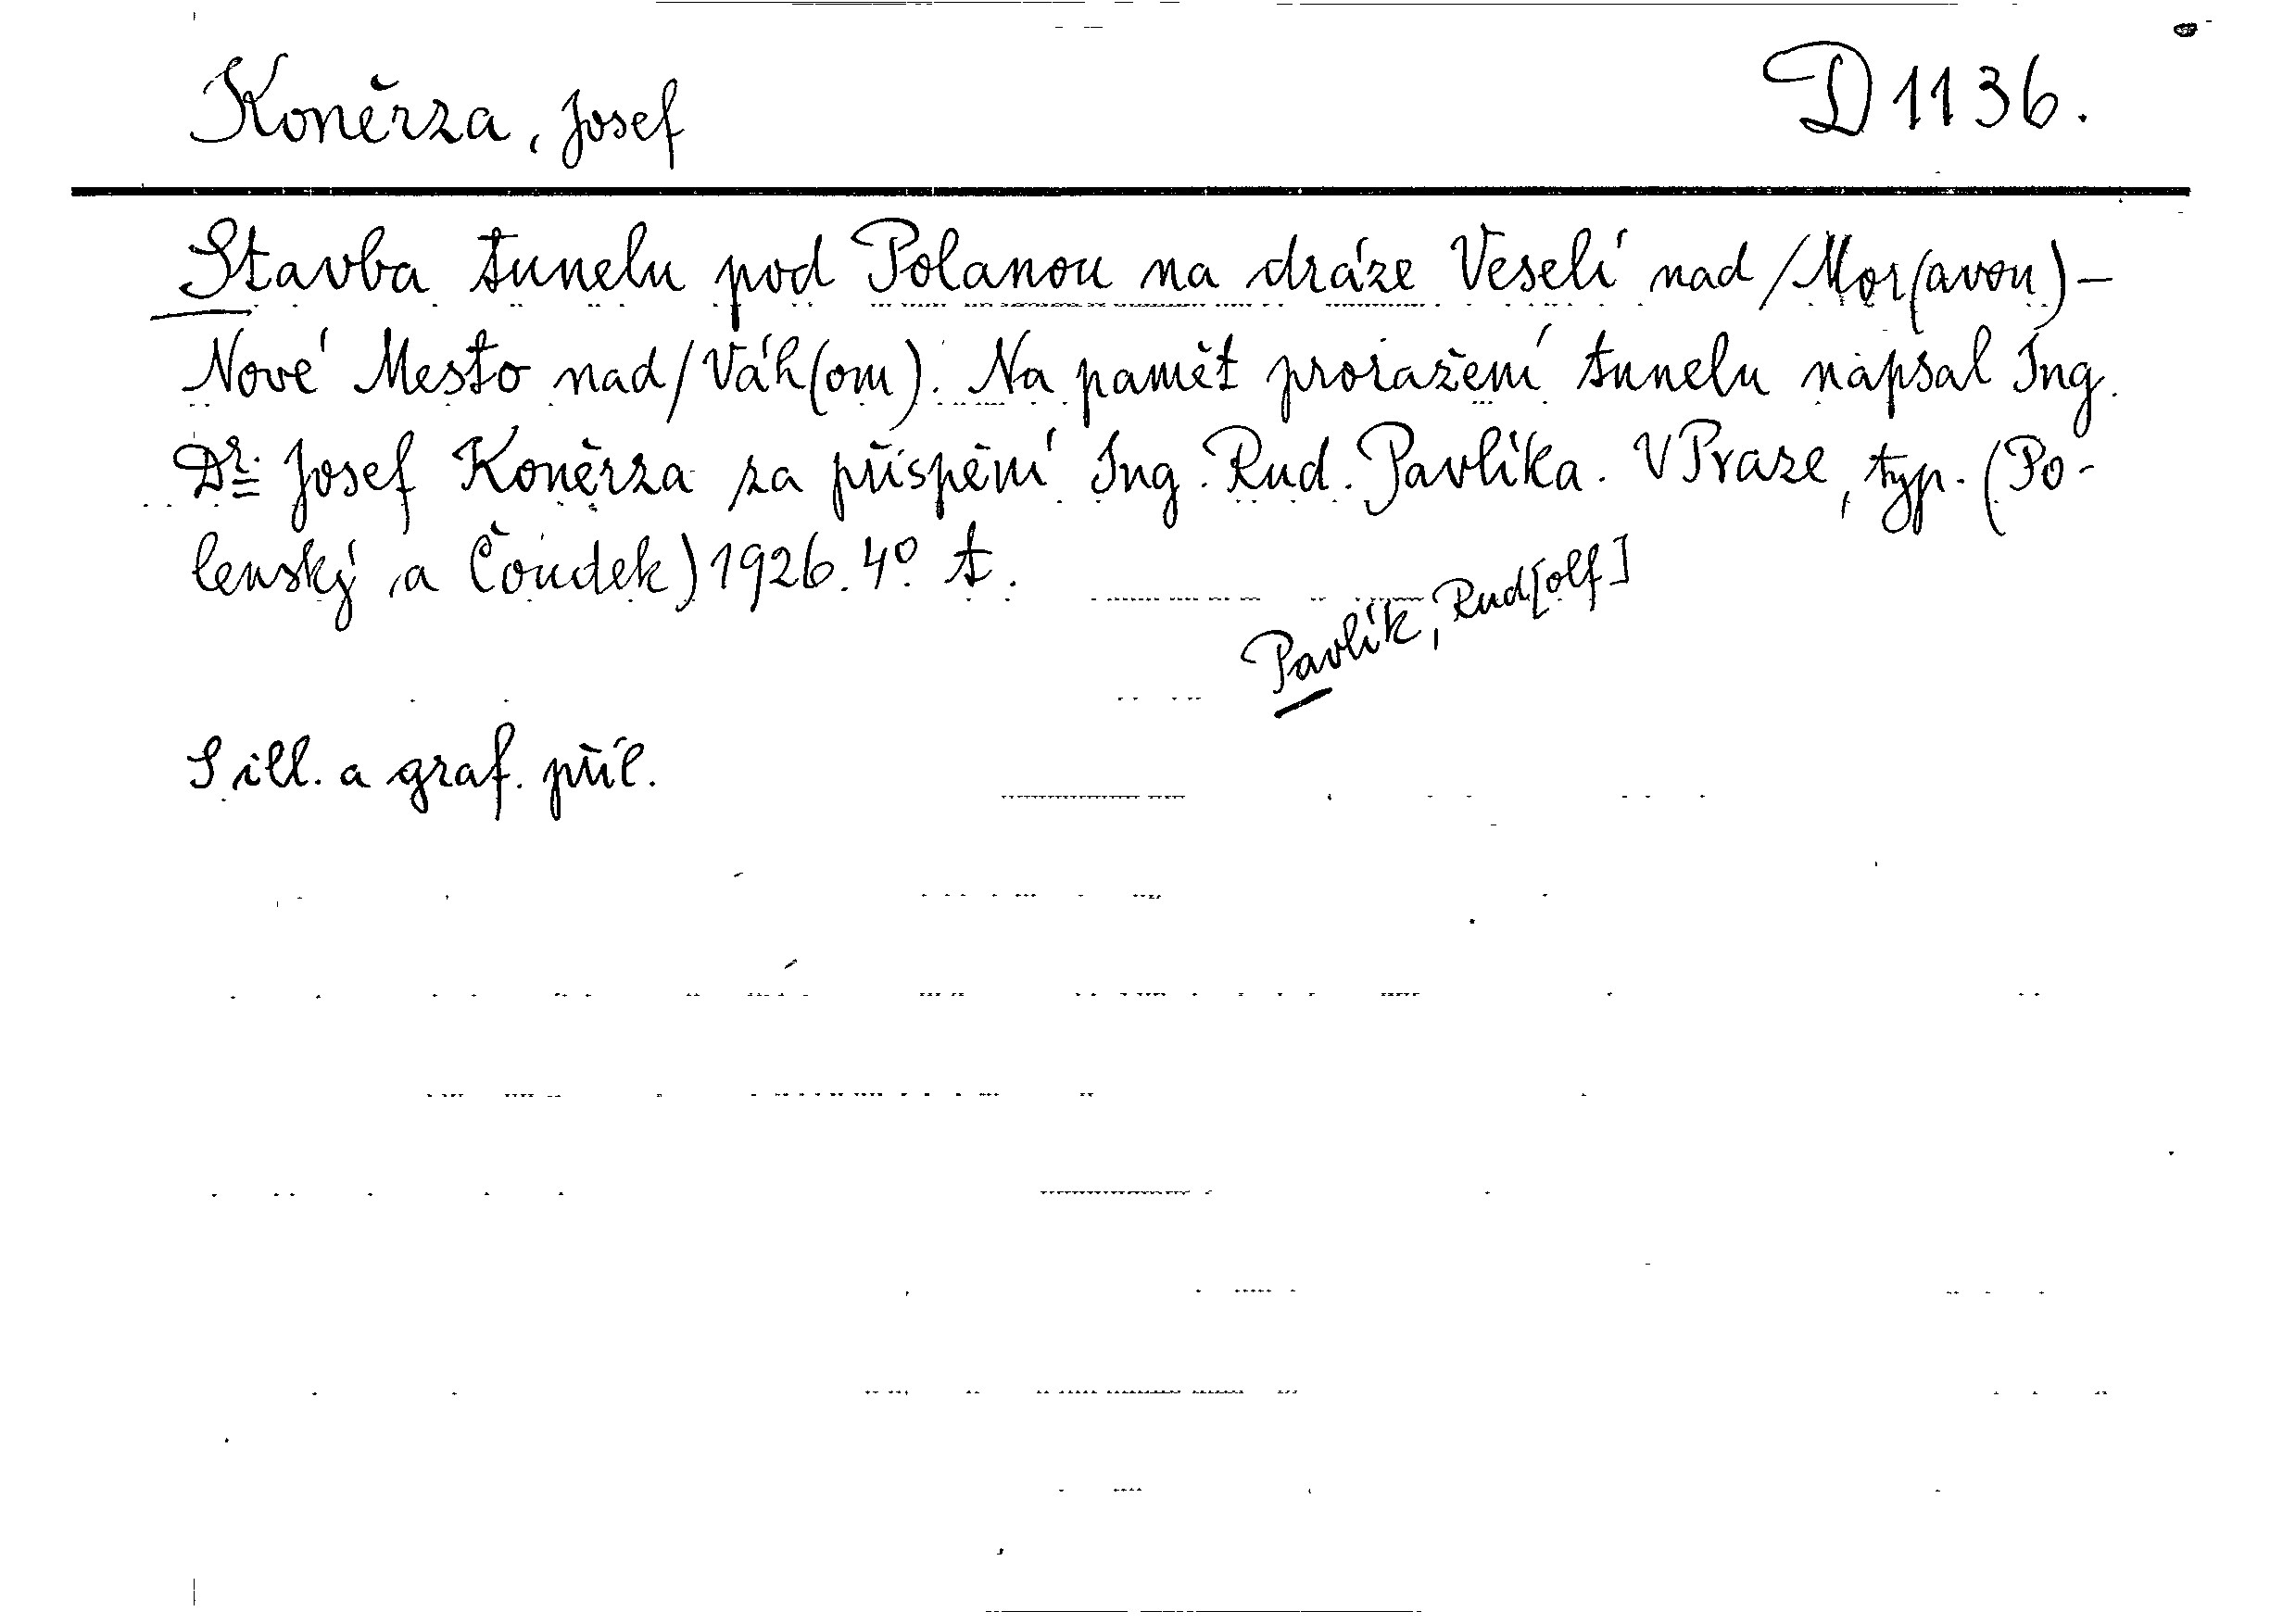 Koněrza, Josef
D 1136.
Stavba tunelu pod Polanou na dráze Veselí nad/Mor(avou)-
Nové Mesto nad/Váh(om). Na pamět proražení tunelu napsal Ing.
Dr. Josef Koněrza za přispění Ing. Rud. Pavlíka. V Praze, typ. (Po-
lenský a Čoudek) 1926. 4° t.
Pavlík, Rud[olf]
S ill. a graf. příl.